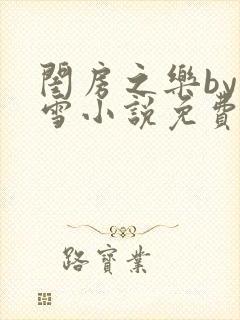 閨房之樂by
雪小說免費
路寶業